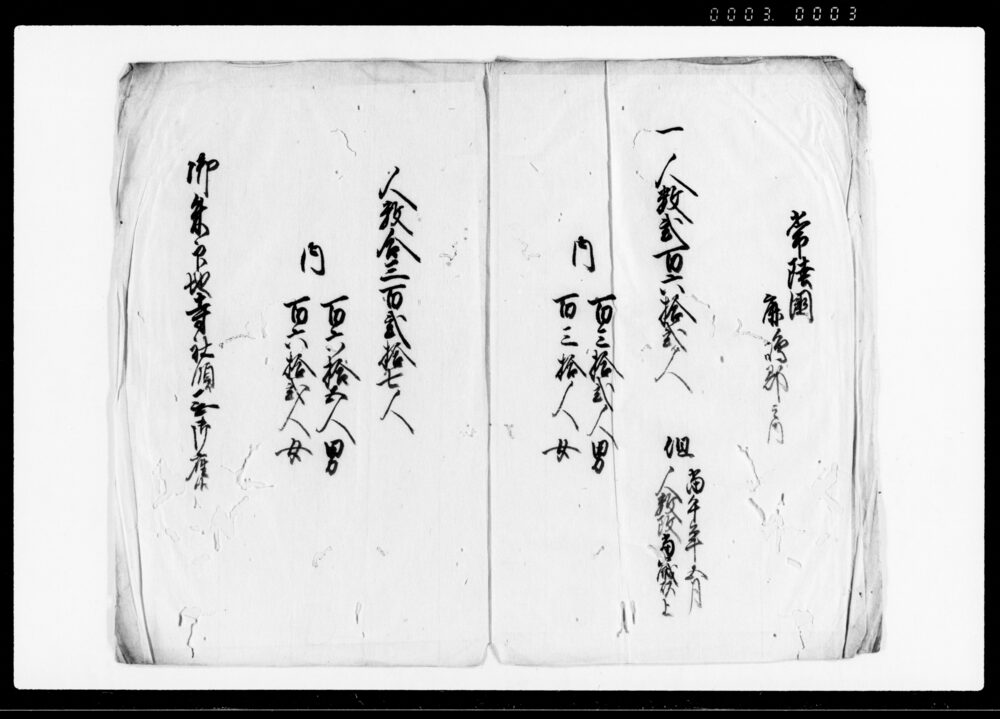 0003. 0003
常陸國
鹿嶋郡之内
一 人数弐百六拾弐人
但 当午年五月
人数改当歳以上
内 百三拾弐人 男
百三拾人 女
人数合三百弐拾七人
内 百六拾五人 男
百六拾弐人 女
御朱印地寺社領無御座候